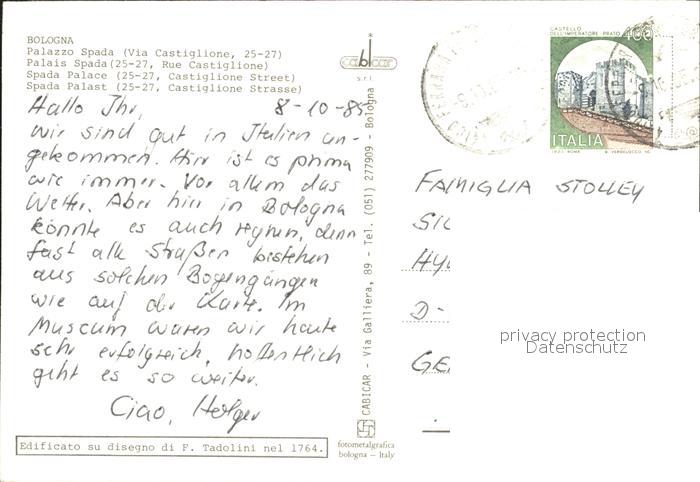 BOLOGNA
Palazzo Spada (Via Castiglione, 25-27)
Palais Spada (25-27, Rue Castiglione)
Spada Palace (25-27, Castiglione Street)
Spada Palast (25-27, Castiglione Strasse)
Hallo Ihr, 8-10-85
wir sind gut in Italien an-
gekommen. Hier ist es prima
wie immer. Vor allem das
Wetter. Aber hier in Bologna
könnte es auch regnen, denn
fast alle Straßen bestehen
aus solchen Bogengängen
wie auf der Karte. Im
Museum waren wir heute
sehr erfolgreich, hoffentlich
geht es so weiter.
Ciao, Holger
Edificato su disegno di F. Tadolini nel 1764.
cabicar
s.r.l.
CABICAR - Via Galliera, 89 - Tel. (051) 277909 - Bologna
fotometalgrafica
bologna - Italy
CASTELLO
DELL'IMPERATORE PRATO 400
ITALIA
FAMIGLIA STOLLEY
SI
HY
D-
GE
privacy protection
Datenschutz